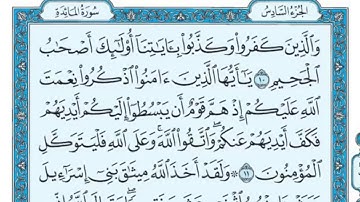 الجزء السادس
سورة المائدة
وَالَّذِينَ كَفَرُوا وَكَذَّبُوا بِآيَاتِنَا أُولَٰئِكَ أَصْحَابُ
الْجَحِيمِ ١٠ يَا أَيُّهَا الَّذِينَ ءَامَنُوا اذْكُرُوا نِعْمَتَ
اللَّهِ عَلَيْكُمْ إِذْ هَمَّ قَوْمٌ أَن يَبْسُطُوا إِلَيْكُمْ أَيْدِيَهُمْ
فَكَفَّ أَيْدِيَهُمْ عَنكُمْ ۖ وَاتَّقُوا اللَّهَ ۚ وَعَلَى اللَّهِ فَلْيَتَوَكَّلِ
الْمُؤْمِنُونَ ١١ ۞ وَلَقَدْ أَخَذَ اللَّهُ مِيثَاقَ بَنِي إِسْرَائِيلَ